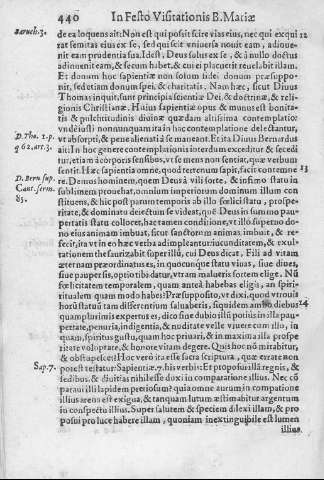 440 In Festo Visitationis B. Mariæ
Baruch.3. de ea loquens ait: Non est qui possit scire vias eius, nec qui exqui 12
rat semitas eius ex se, sed qui scit vniuersa nouit eam, adinue-
nit eam prudentia sua. Idest, Deus solus ex se, & à nullo doctus
adinuenit eam, & secum habet, & cui ei placuerit reuelabit illam.
Et donum hoc sapientiæ non solum fidei donum præsuppo-
nit, sed etiam donum spei, & charitatis. Nam hæc, sicut Diuus
Thomas inquit, sunt principia scientiæ Dei, & doctrinæ, & reli-
gionis Christianæ. Huius sapientiæ opus & munus est bonita-
tis & pulchritudinis diuinæ quædam altissima contemplatio:
D. Tho. 2. p. vnde iusti nonnunquam ita in hac contemplatione delectantur,
q 62. art. 3. vt absorpti, & pene alienati à se maneant. Et ita Diuus Bernardus
ait: In hoc genere contemplationis interdum exceditur & secedi
tur, etiam à corporis sensibus, vt se mens non sentiat, quæ verbum
sentit. Hæc sapientia omne, quod terrenum sapit, facit contemne 13
D. Bern sup. re. Denus hominem, quem Deus à vili sorte, & infimo statu in
Cant. serm. sublimem prouehat, omnium imperiorum dominum illum con
85. stituens, & hic post parum temporis ab illo fœlici statu, prospe-
ritate, & dominatu deiectum se videat, quē Deus in summo pau-
pertatis statu collocet, hac tamen conditione, vt illo superno do-
no eius animam imbuat, sicut sanctorum animas imbuit, & re-
fecit, ita vt in eo hæc verba adimpleantur iucunditatem, & exul-
tationem thesaurizabit super illū, cui Deus dicat, Fili ad vitam
æternam præordinatus es, in quocunque statu viuas, siue diues,
siue pauper sis, optio tibi datur, vtram malueris sortem elige. Nū
fœlicitatem temporalem, quam antea habebas eligis, an spiri-
itualem quam modo habes? Præsupposito, vt dixi, quod vtrouis
horū statu tam differentium saluaberis, siquidem ambo diebus 14
quamplurimis expertus es, dico sine dubio illū potius in illa pau-
pertate, penuria, indigentia, & nuditate velle viuere cum illo, in
quam, spiritus gustu, quam hoc priuari, & in maxima illa prospe
ritate voluptate, & honore vitam degere. Quis hoc nō mirabitur,
& obstupescet? Hoc verò ita esse sacra scriptura, quæ errare non
Sap. 7. potest testatur: Sapientiæ. 7. his verbis: Et proposui illā regnis, &
sedibus: & diuitias nihil esse dixi in comparatione illius. Nec cō
paraui illi lapidem pretiosum: quia omne aurum in comparatione
illius arena est exigua, & tanquam lutum æstimabitur argentum
in conspectu illius. Super salutem & speciem dilexi illam, & pro
posui pro luce habere illam, quoniam inextinguibile est lumen
illius.